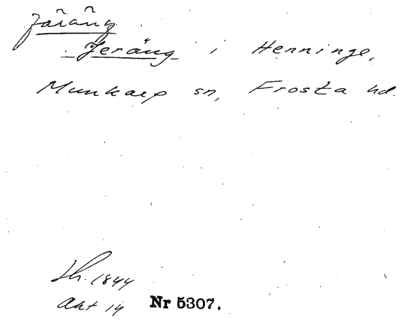 Järäng
Jeräng i Henninge,
Munkarp sn, Frosta hd.
Lh. 1844
Akt 14 Nr 5307.